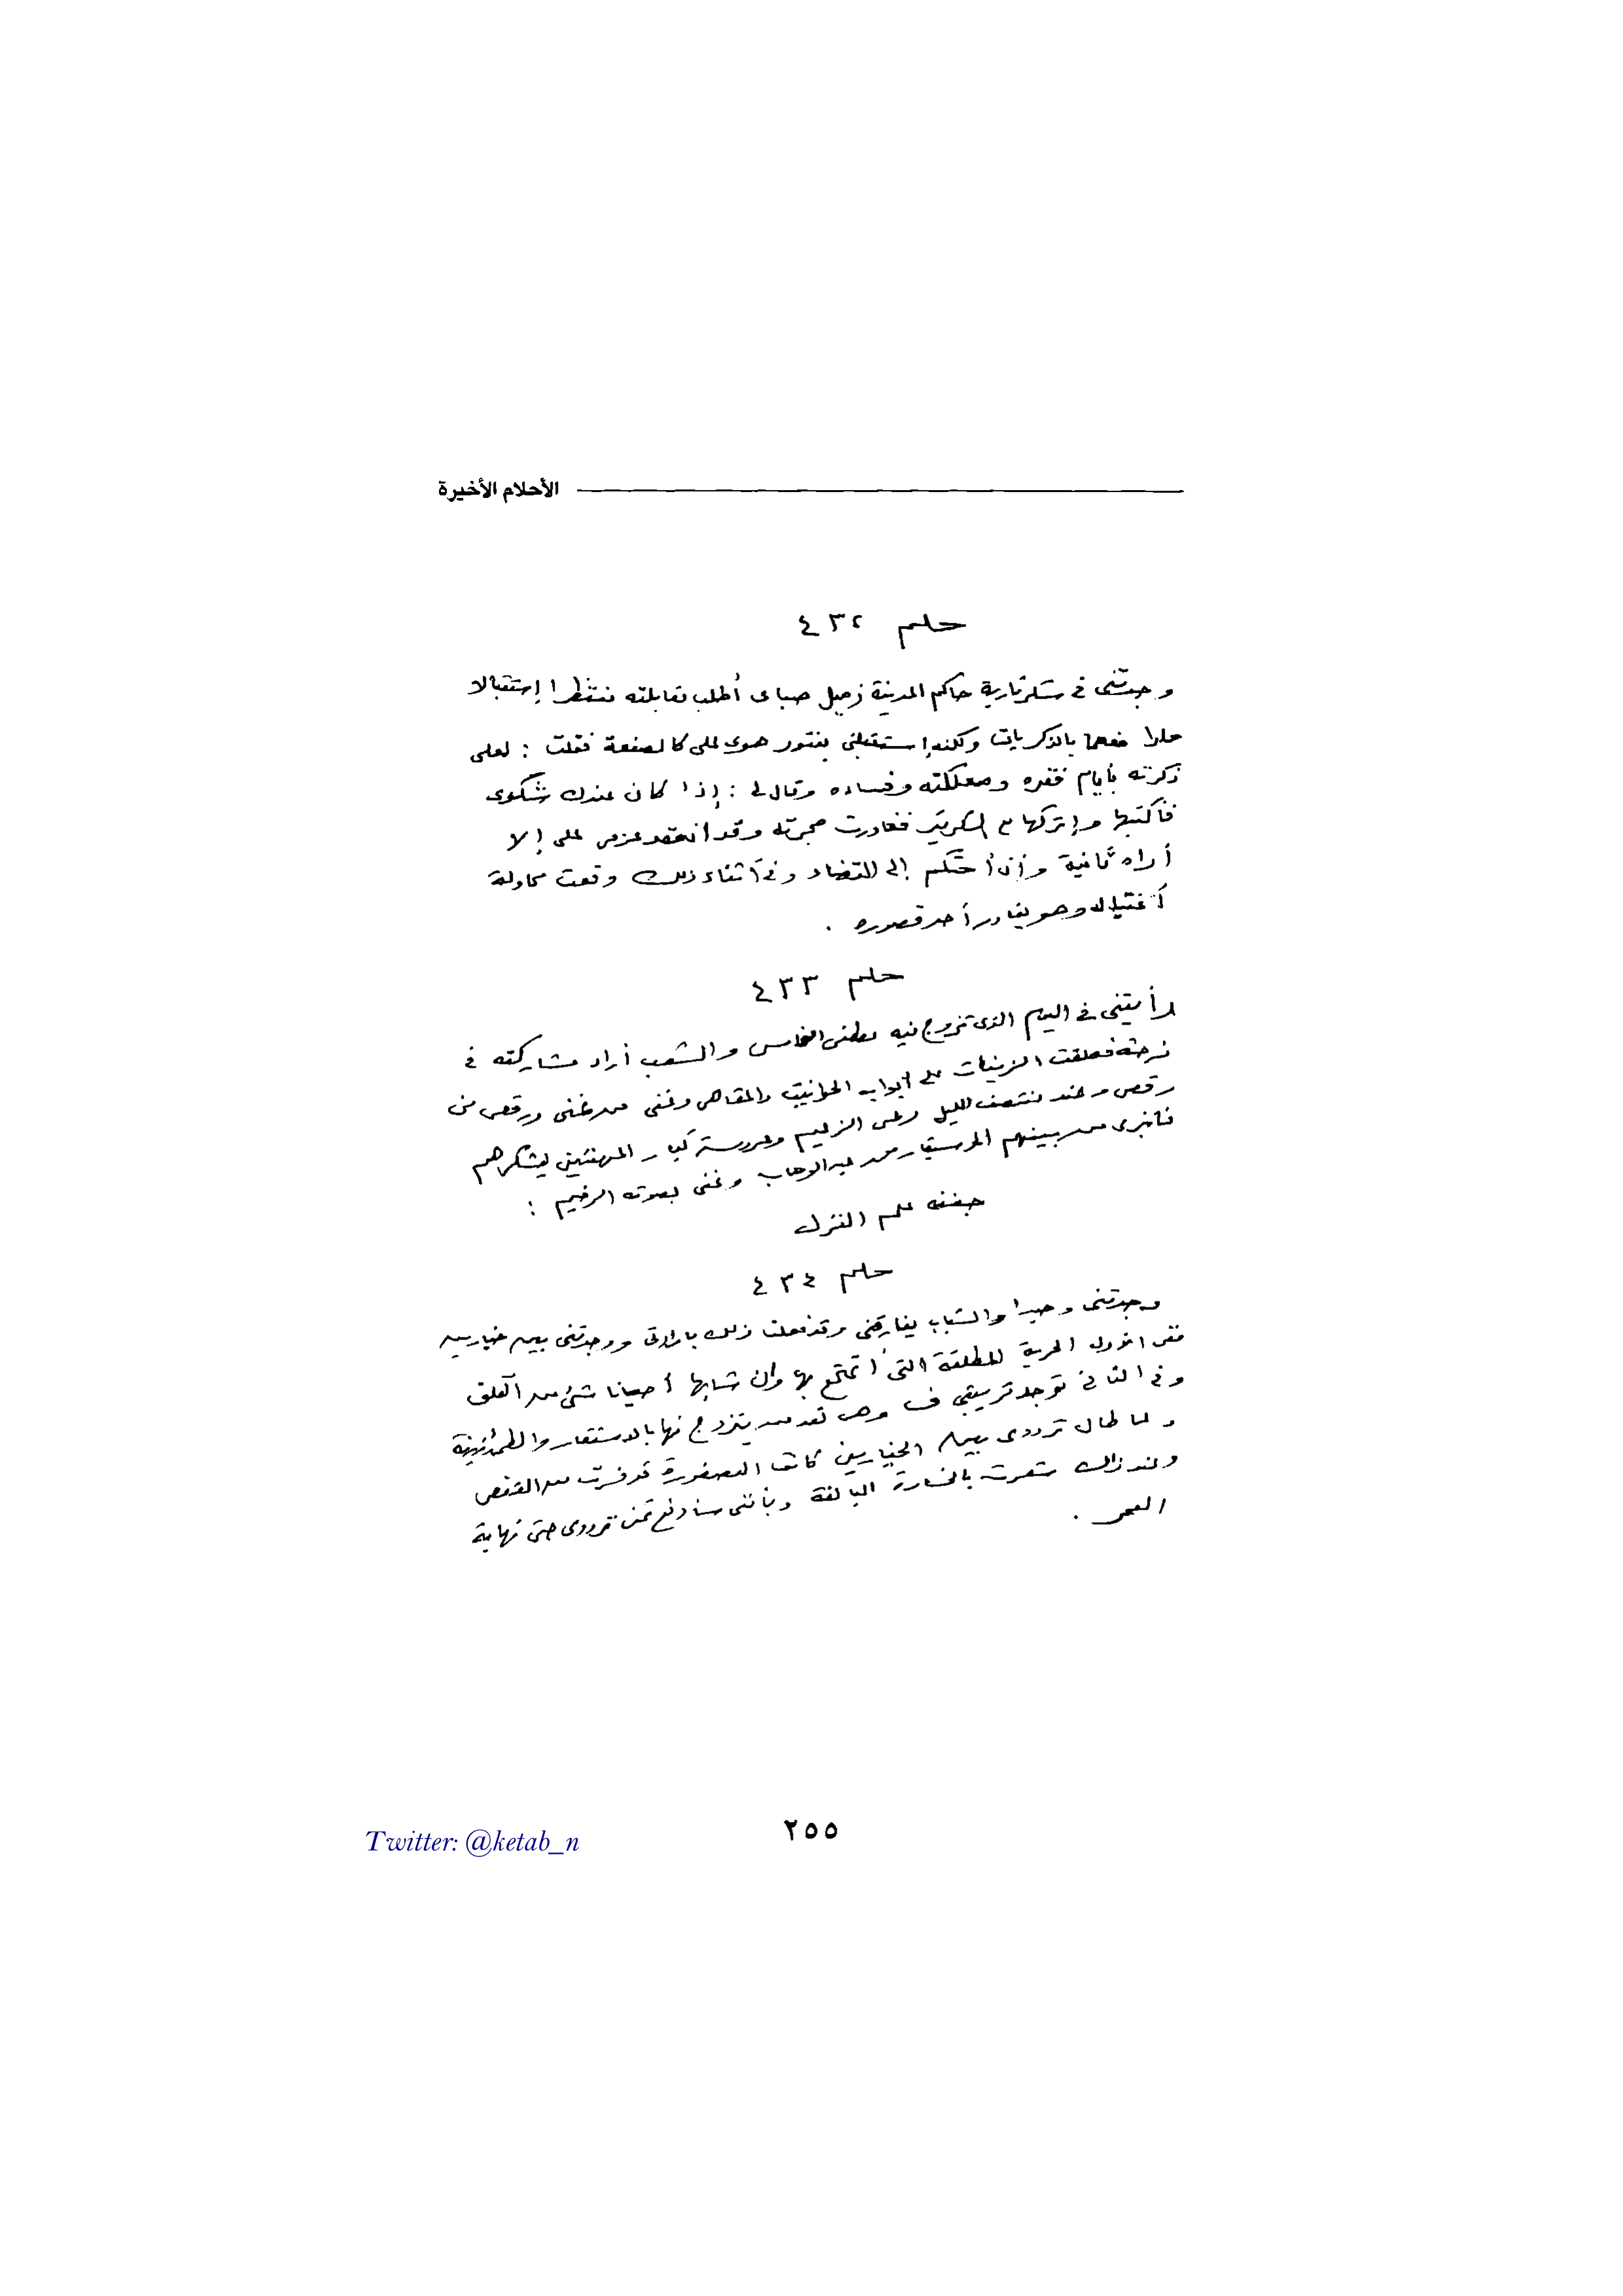 الأحلام الأخيرة
حلم ٤٣٢
وجدتنى فى سكرتارية حاكم المدينة زميل صباى أطلب مقابلته منتظرا إستقبالا
حارا مفعما بالذكريات ولكنه إستقبلنى بفتور هوى على كالصفعة فقلت : لعلى
ذكرته بأيام فقره وصعلكته وفساده وقال لى : إذا كان عندك شكوى
فأكتبها وإتركها مع السكرتير فغادرت حجرته وقد انعقد عزمى على إلا
أراه ثانية وأن أحتكم إلى القضاء وفى أثناء ذلك وقعت محاولة
أغتياله وهو يغادر أحد قصوره .
حلم ٤٣٣
رأيتنى فى اليوم الذى تزوج فيه مصطفى النحاس والشعب أراد مشاركته فى
فرحته فعلقت الزينات على أبواب الحوانيت والمقاهى وغنى من غنى ورقص من
رقص وعند منتصف الليل دعى الزعيم وعروسه كبار المهنئين ليشكرهم
فانبرى من بينهم الموسيقار محمد عبد الوهاب وغنى بصوته الرخيم :
جفنه علم الغزل
حلم ٤٣٤
وجدتنى وحيدا والشباب يفارقنى وقد فعلت ذلك بارادتى ووجدتنى بين خيارين
ففى الأول الحرية المطلقة التى أتمتع بها وإن شابها أحيانا شئ من القلق
وفى الثانى توجد قريبتى ف وهى تعد من يتزوج منها بالاستقرار والطمأنينة
ولما طال ترددى بين الخيارين كانت العصفورة قد فرت من القفص
وعند ذلك شعرت بالخسارة البالغة وبأننى سأدفع ثمن ترددى حتى نهاية
العمر .
٢٥٥
Twitter: @ketab_n